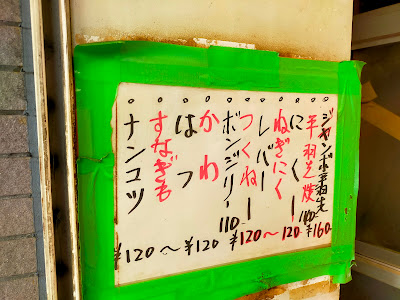 ジャンボ手羽先 ¥160
手羽先焼 110
にく
ねぎにく ~120
レバー
つくね ¥120
ボンジリ 110
かわ
はつ ¥120
すなぎも ~
ナンコツ ¥120